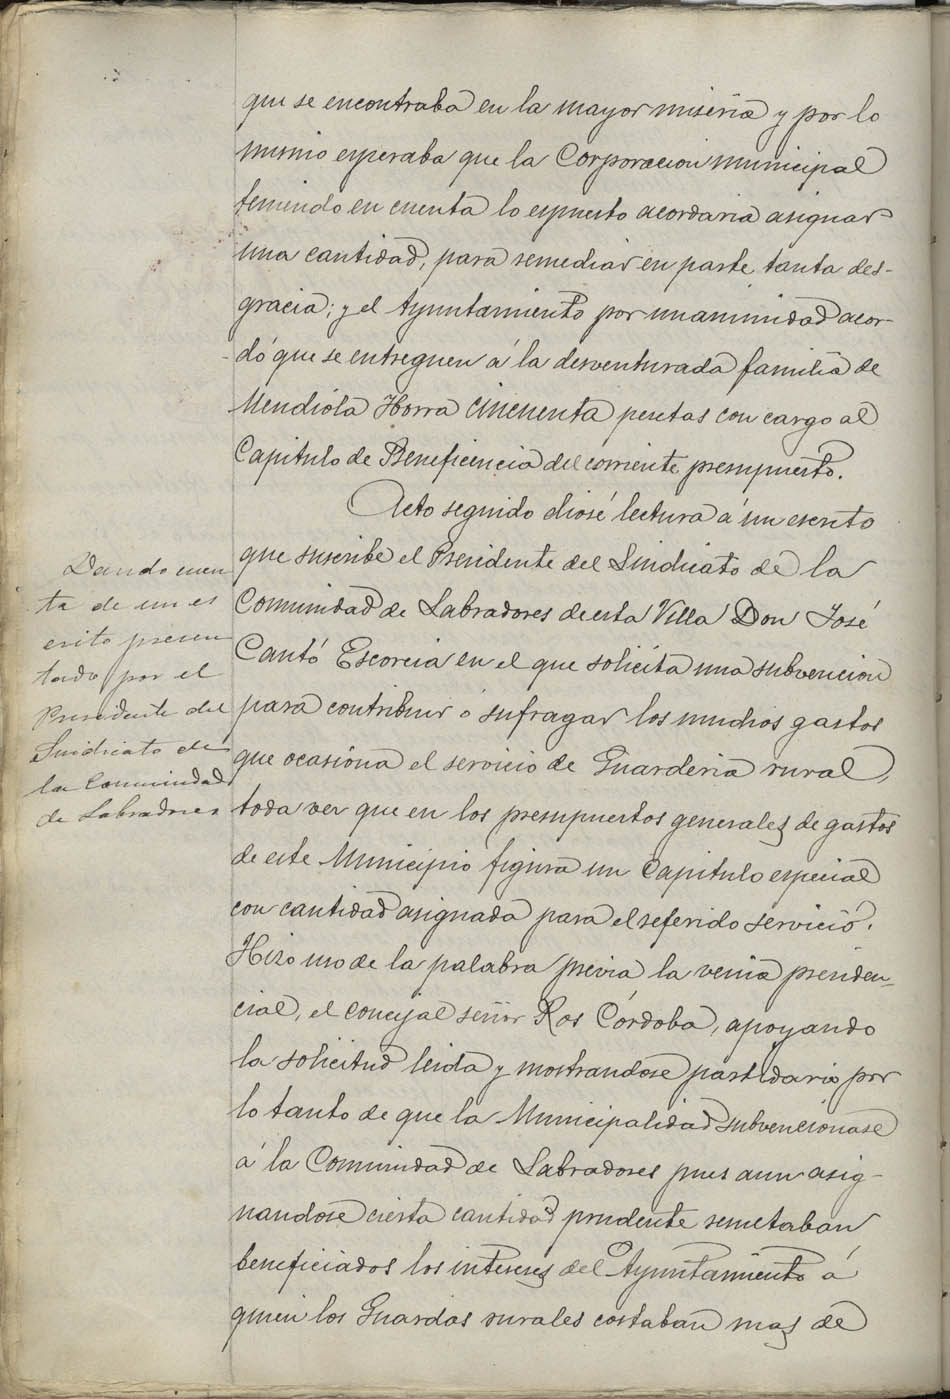 que se encontraba en la mayor miseria y por lo
mismo esperaba que la Corporacion municipal
teniendo en cuenta lo espuesto acordaria asignar
una cantidad, para remediar en parte tanta des-
gracia; y el Ayuntamiento por unanimidad acor-
-dó que se entreguen á la desventurada familia de
Mendiola Horra cincuenta pesetas con cargo al
Capitulo de Beneficencia del corriente presupuesto.
Acto seguido diose lectura á un escrito
que suscribe el Presidente del Sindicato de la
Comunidad de Labradores de esta Villa Don José
Cantó Escorcia en el que solicita una subvencion
para contribuir ó sufragar los muchos gastos
que ocasiona el servicio de Guarderia rural,
toda vez que en los presupuestos generales de gastos
de este Municipio figura un Capitulo especial
con cantidad asignada para el referido servicio.
Hizo uso de la palabra previa la venia presiden-
cial, el concejal señor Ros Córdoba, apoyando
la solicitud leida y mostrandose partidario por
lo tanto de que la Municipalidad subvencionase
á la Comunidad de Labradores pues aun asig-
nandose cierta cantidad prudente
beneficiados los intereses del Ayuntamiento á
quien los Guardas rurales costaban mas de
Dando cuen
ta de un es
crito presen
tado por el
Presidente del
Sindicato de
la Comunidad
de Labradores